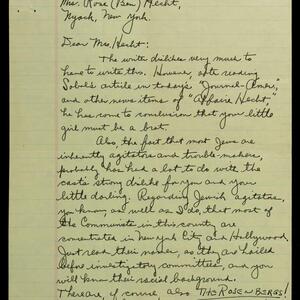 Mrs. Rose (Ben) Hecht,
Nyack, New York.
Dear Mrs. Hecht:
The writer dislikes very much to
have to write this. However, after reading
Sobol's article in today's "Journal-Amer.",
and other news items of "Affaire Hecht",
he has come to conclusion that your little
girl must be a brat.
Also, the fact that most Jews are
inherently agitators and trouble-makers,
probably has had a lot to do with the
cast's strong dislike for you and your
little darling. Regarding Jewish agitators,
you know, as well as I do, that most of
the Communists in this country are
concentrated in New York City and Hollywood.
Just read their names, as they are hailed
before investigating committees, and you
will know their racial background.
There are, of course, also THE ROSENBERGS!